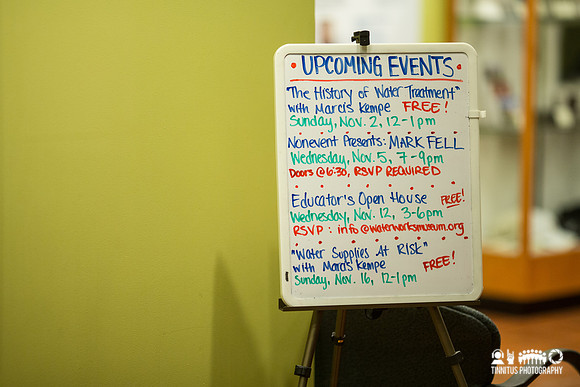 UPCOMING EVENTS
"The History of Water Treatment"
with Marcis Kempe FREE!
Sunday, Nov. 2, 12-1pm
Nonevent Presents: MARK FELL
Wednesday, Nov. 5, 7-9pm
Doors @ 6:30, RSVP REQUIRED
Educator's Open House FREE!
Wednesday, Nov. 12, 3-6pm
RSVP: info@waterworksmuseum.org
"Water Supplies At RISK"
with Marcis Kempe FREE!
Sunday, Nov. 16, 12-1pm
TINNITUS PHOTOGRAPHY